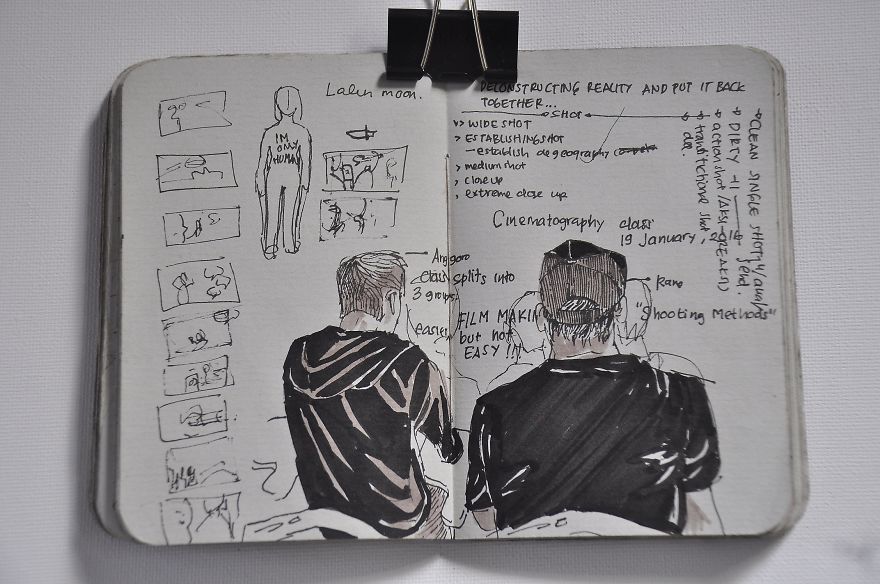 Lalen moon.
IM
ONLY
HUMAN
DECONSTRUCTING REALITY AND PUT IT BACK
TOGETHER...
SHOT
> WIDE SHOT
> ESTABLISHING SHOT
- establish de geography
> medium shot
> close up
> extreme close up
CLEAN SINGLE SHOT
DIRTY
action shot
transitional shot
Cinematography class
19 January, 2016
Anggoro
class splits into
3 groups
easier
FILM MAKIN
but not
EASY !!!
Rano
"Shooting Methods"